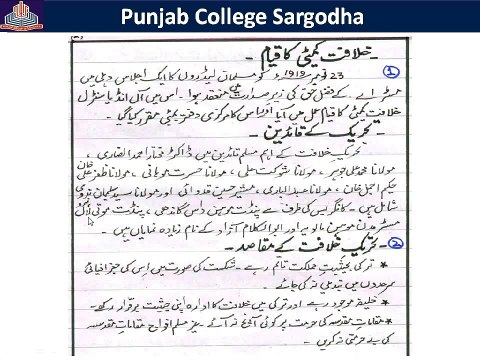 Punjab College Sargodha
- خلافت کمیٹی کا قیام -
23 نومبر 1919ء کو مسلمان لیڈروں کا ایک اجلاس دہلی میں ①
مسٹر اے کے فضل حق کی زیر صدارت میں منعقد ہوا ۔ اس میں آل انڈیا سنٹرل
خلافت کمیٹی کا قیام عمل میں آیا اور اس کا مرکزی دفتر بمبئی مقرر کیا گیا ۔
- تحریک کے قائدین -
تحریک خلافت کے اہم مسلم قائدین میں ڈاکٹر مختار احمد انصاری ،
مولانا محمد علی جوہر ، مولانا شوکت علی ، مولانا حسرت موہانی ، مولانا ظفر علی خان
حکیم اجمل خان ، مولانا عبدالباری ، مشیر حسین قدوائی اور مولانا سید سلمان ندوی
شامل ہیں ۔ کانگریس کی طرف سے پنڈت موہن داس گاندھی ، پنڈت موتی لال
مدن موہن مالویہ اور ابوالکلام آزاد کے نام زیادہ نمایاں ہیں ۔
② - تحریک خلافت کے مقاصد -
* ترکی بحیثیت مملکت قائم رہے ۔ شکست کی صورت میں اس کی جغرافیائی
سرحدوں میں تبدیلی نہ کی جائے ۔
* خلیفہ موجود رہے اور ترکی میں خلافت کا ادارہ اپنی حیثیت برقرار رکھے ۔
* مقامات مقدسہ کی حرمت پر کوئی آنچ نہ آئے ۔ غیر مسلم افواج مقامات مقدسہ
کی بے حرمتی نہ کریں ۔